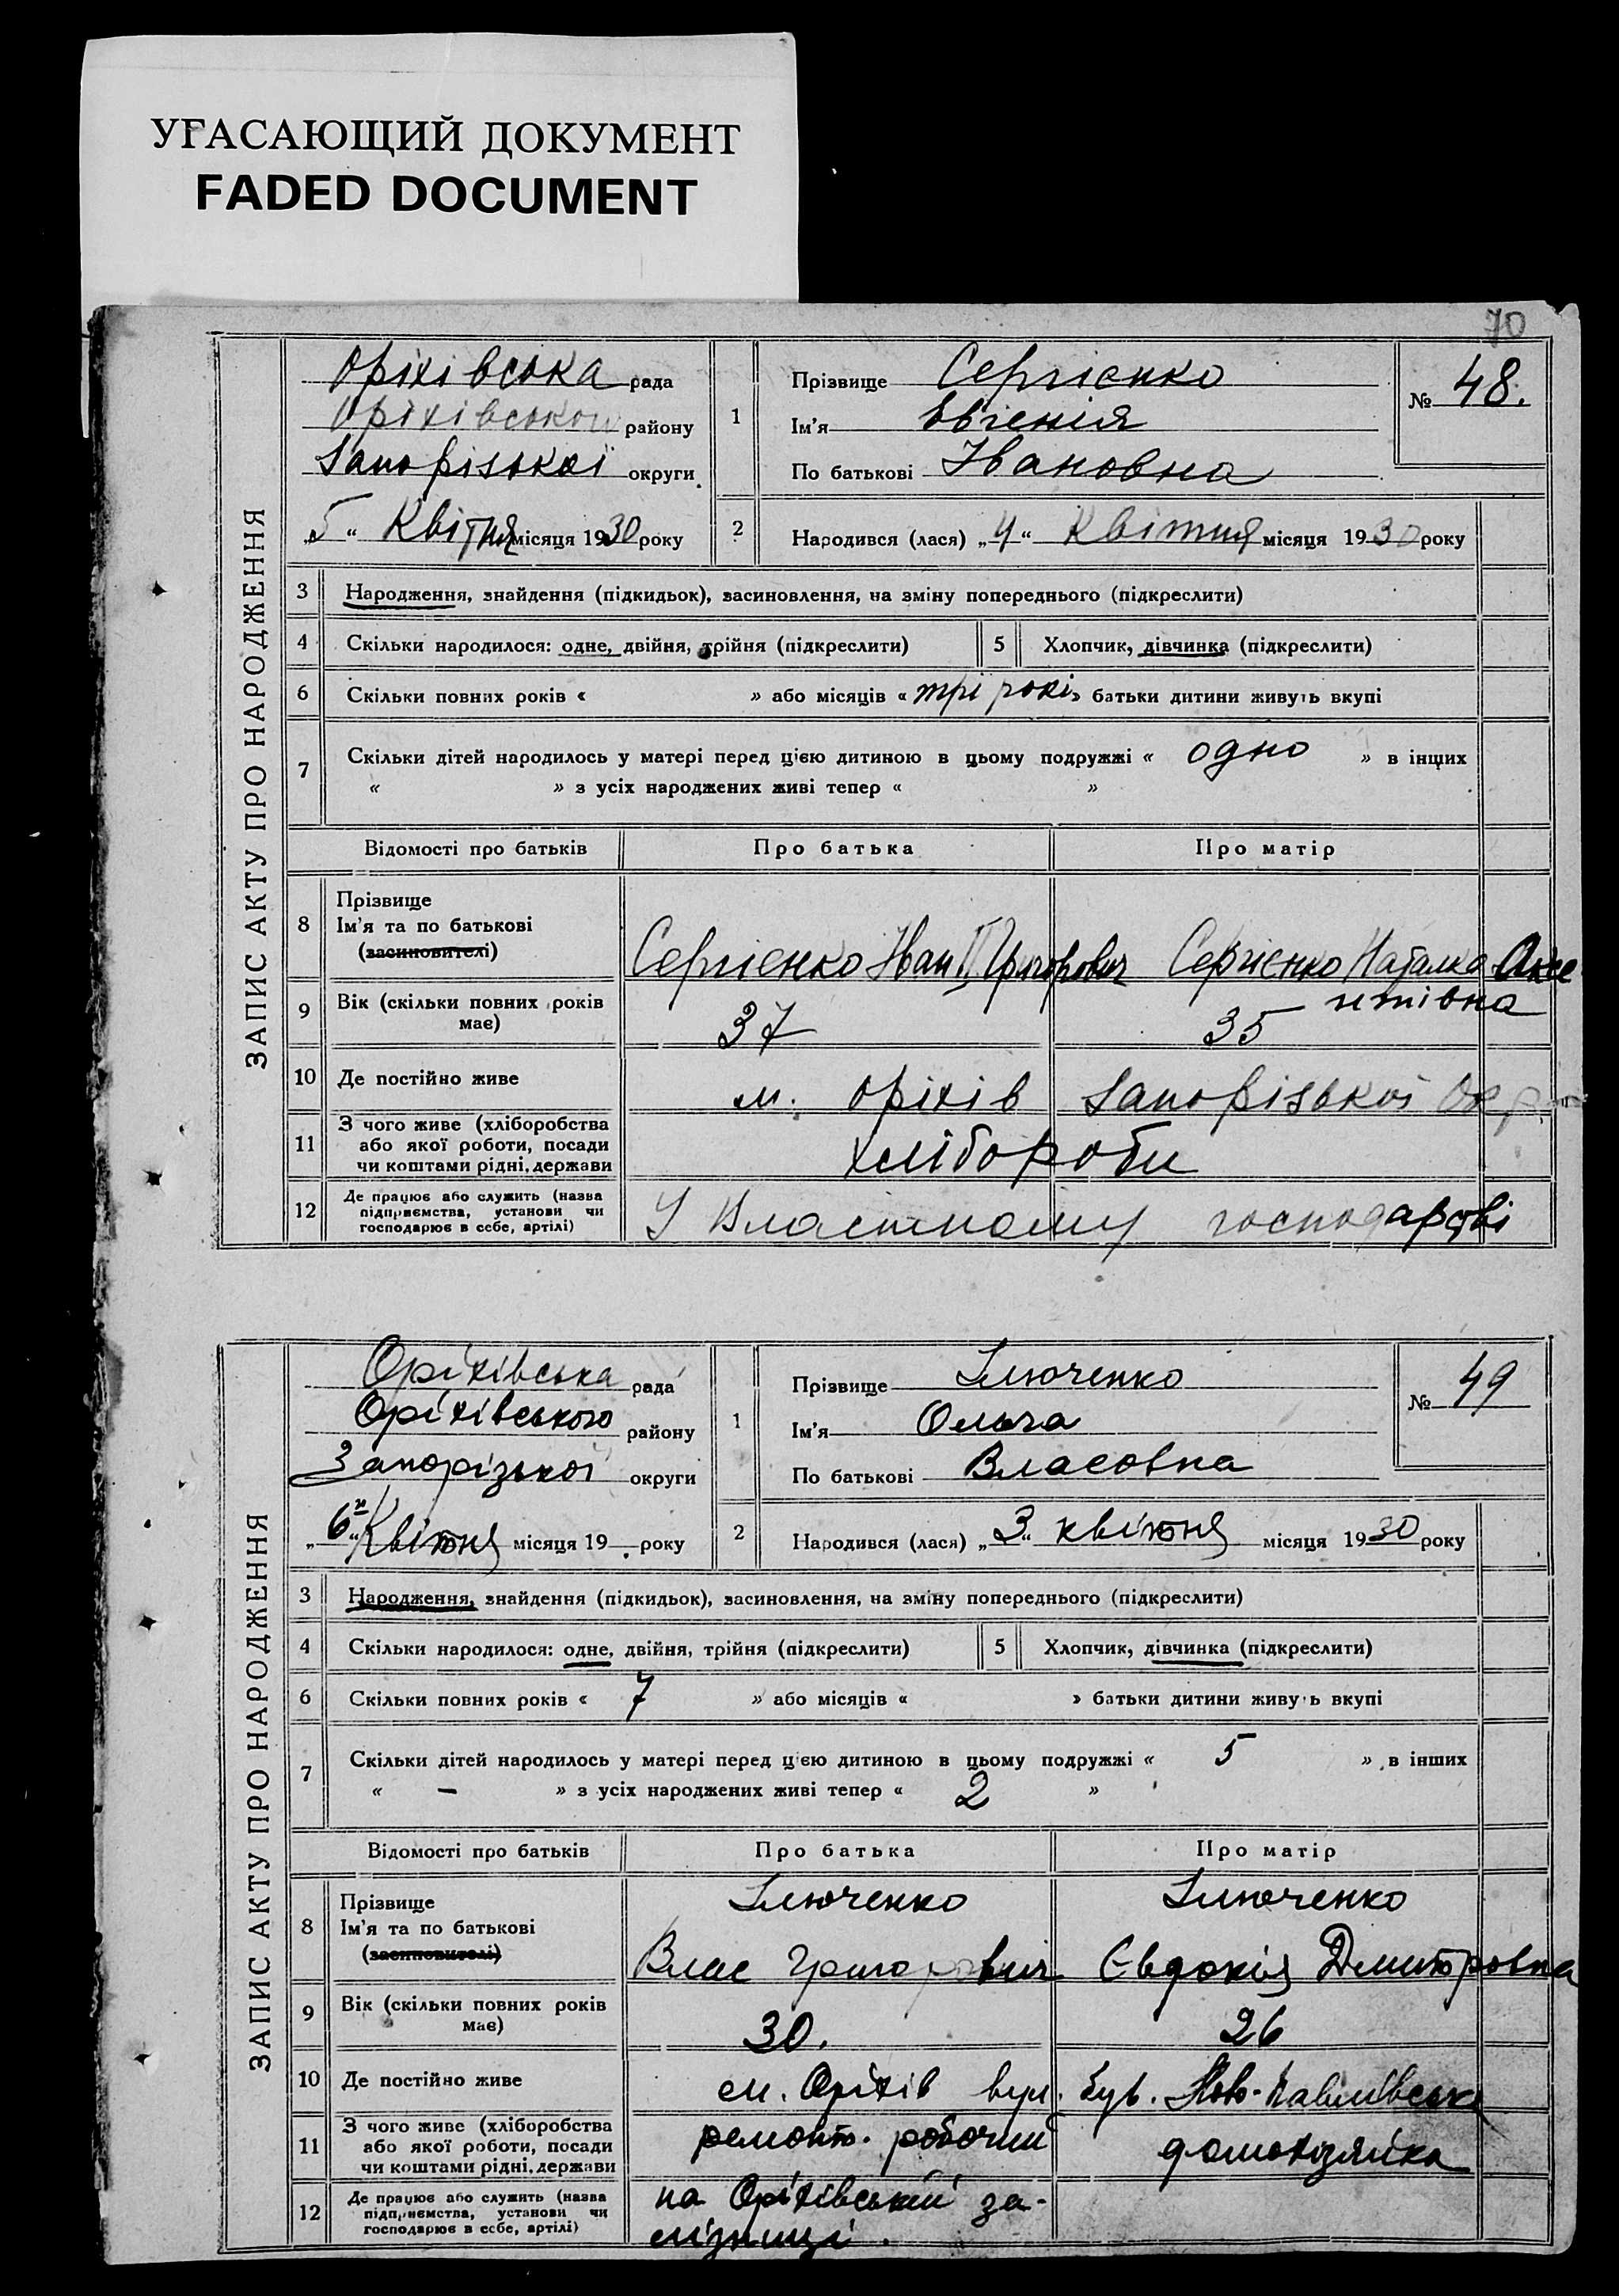 УГАСАЮЩИЙ ДОКУМЕНТ
FADED DOCUMENT
70
ЗАПИС АКТУ ПРО НАРОДЖЕННЯ
Оріхівська рада
Оріхівського району
Запорізької округи
„5“ Квітня місяця 1930 року
1
Прізвище Сергієнко
Ім'я Евгенія
По батькові Ивановна
№ 48.
2
Народився (лася) „4“ Квітня місяця 1930 року
3 Народження, знайдення (підкидьок), засиновлення, на зміну попереднього (підкреслити)
4 Скільки народилося: одне, двійня, трійня (підкреслити) 5 Хлопчик, дівчинка (підкреслити)
6 Скільки повних років « » або місяців « три роки » батьки дитини живуть вкупі
7 Скільки дітей народилось у матері перед цією дитиною в цьому подружжі « одно » в інших
« » з усіх народжених живі тепер « »
Відомості про батьків Про батька Про матір
8 Прізвище
Ім'я та по батькові
(засиновителі)
Сергієнко Иван Григорович Сергієнко Наталка
9 Вік (скільки повних років має)
37 35
10 Де постійно живе
м. Оріхів Запорізької Окр.
11 З чого живе (хліборобства
або якої роботи, посади
чи коштами рідні, держави
хлібороби
12 Де працює або служить (назва
підприємства, установи чи
господарює в себе, артілі)
У Власному господарстві
ЗАПИС АКТУ ПРО НАРОДЖЕННЯ
Оріхівська рада
Оріхівського району
Запорізької округи
„6“ Квітня місяця 19 року
1
Прізвище Ілюченко
Ім'я Ольга
По батькові Власовна
№ 49
2
Народився (лася) „3“ квітня місяця 1930 року
3 Народження, знайдення (підкидьок), засиновлення, на зміну попереднього (підкреслити)
4 Скільки народилося: одне, двійня, трійня (підкреслити) 5 Хлопчик, дівчинка (підкреслити)
6 Скільки повних років « 7 » або місяців « » батьки дитини живуть вкупі
7 Скільки дітей народилось у матері перед цією дитиною в цьому подружжі « 5 » в інших
« – » з усіх народжених живі тепер « 2 »
Відомості про батьків Про батька Про матір
8 Прізвище
Ім'я та по батькові
(засиновителі)
Ілюченко Ілюченко
Влас Григорович Євдокія Дмитровна
9 Вік (скільки повних років має)
30. 26
10 Де постійно живе
м. Оріхів вул. Ново-Павлівська
11 З чого живе (хліборобства
або якої роботи, посади
чи коштами рідні, держави
ремонт. робочий домохізяйка
12 Де працює або служить (назва
підприємства, установи чи
господарює в себе, артілі)
на Оріхівській за-
лізниці.